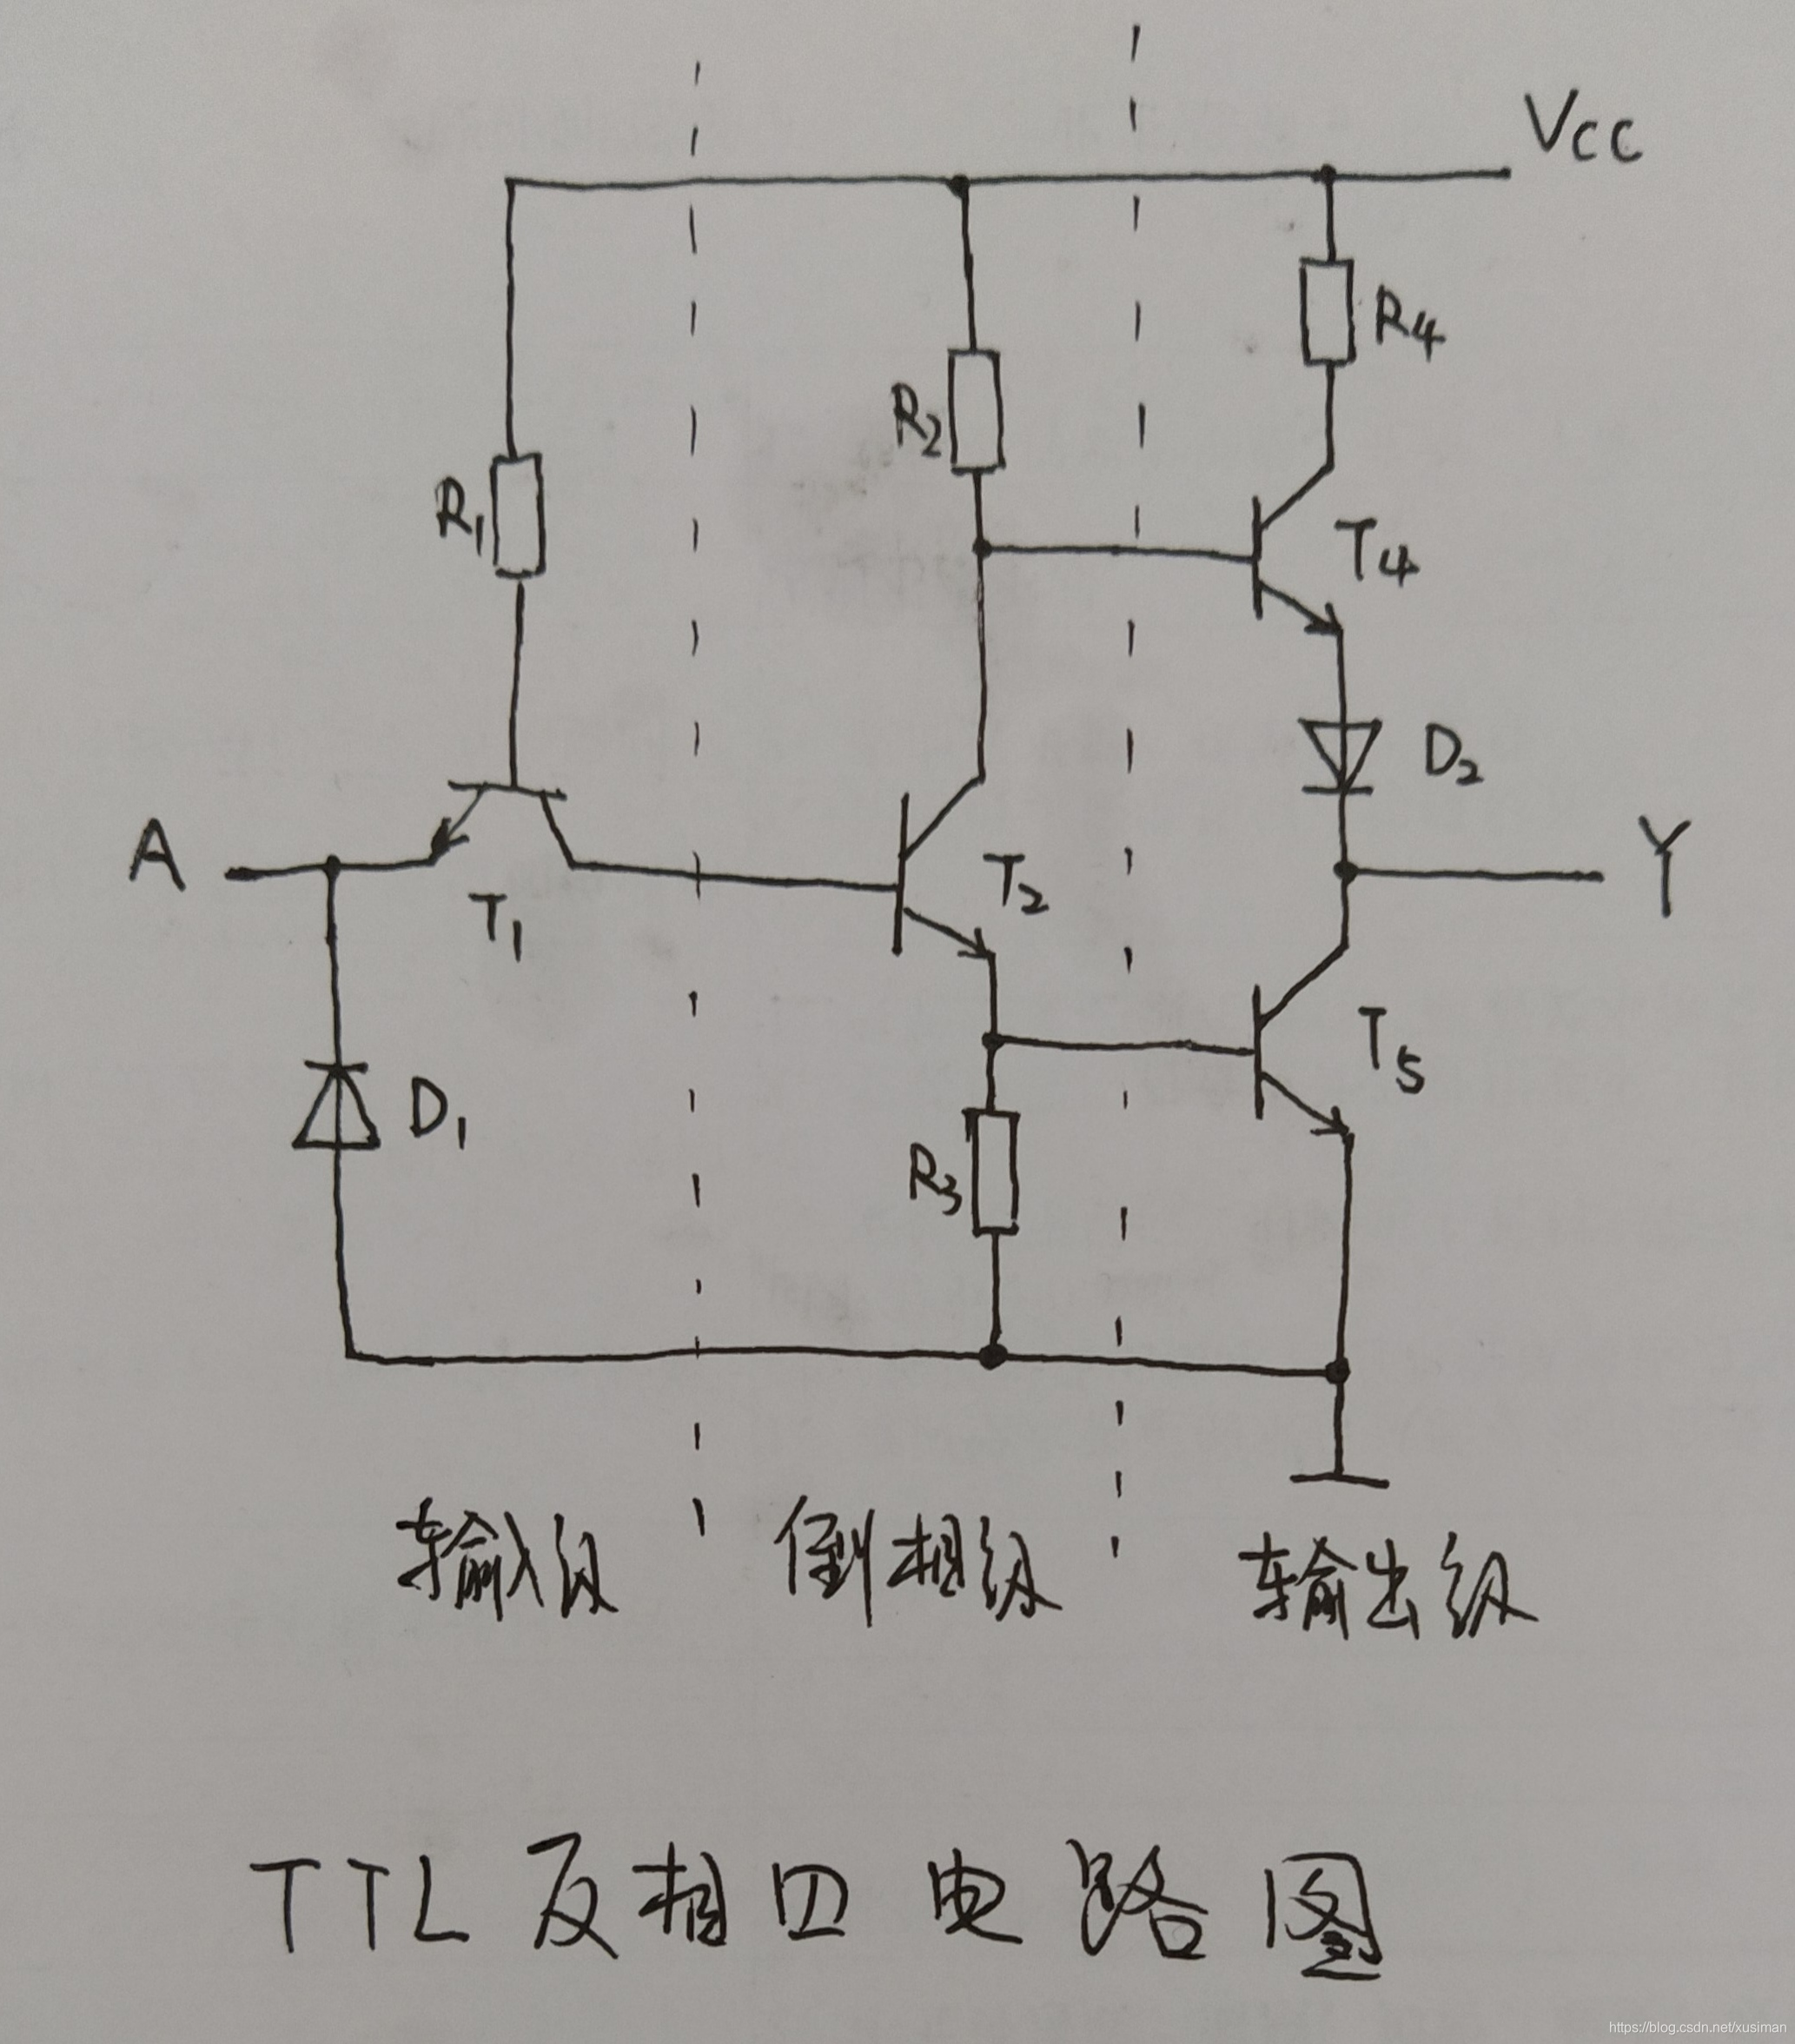 Vcc
R4
R2
R1
T4
D2
A
Y
T2
T1
T5
D1
R3
输入级
倒相级
输出级
TTL 反相四电路图
https://blog.csdn.net/xusiman